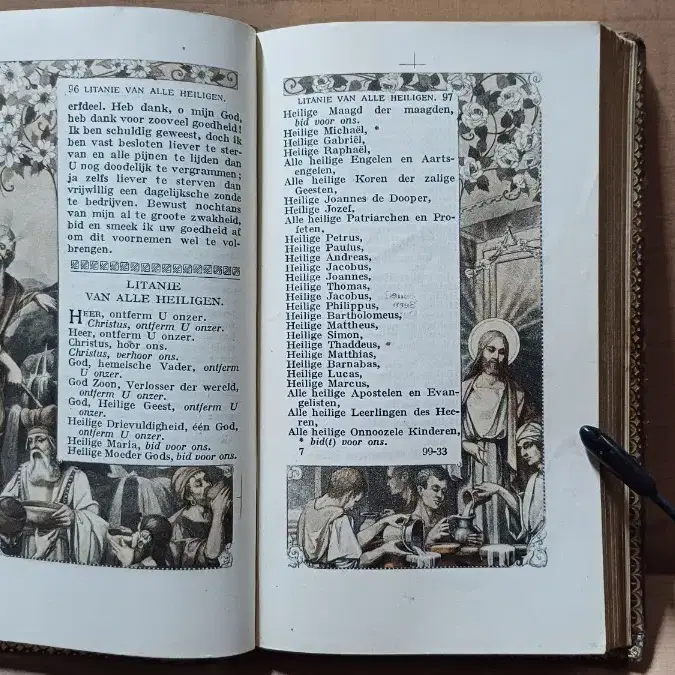 96 LITANIE VAN ALLE HEILIGEN.
erfdeel. Heb dank, o mijn God,
heb dank voor zooveel goedheid!
Ik ben schuldig geweest, doch ik
ben vast besloten liever te ster-
van en alle pijnen te lijden dan
U nog doodelijk te vergrammen;
ja zelfs liever te sterven dan
vrijwillig een dagelijksche zonde
te bedrijven. Bewust nochtans
van mijn al te groote zwakheid,
bid en smeek ik uw goedheid af
om dit voornemen wel te vol-
brengen.
LITANIE
VAN ALLE HEILIGEN.
HEER, ontferm U onzer.
Christus, ontferm U onzer.
Heer, ontferm U onzer.
Christus, hoor ons.
Christus, verhoor ons.
God, hemelsche Vader, ontferm
U onzer.
God Zoon, Verlosser der wereld,
ontferm U onzer.
God, Heilige Geest, ontferm U
onzer.
Heilige Drievuldigheid, één God,
ontferm U onzer.
Heilige Maria, bid voor ons.
Heilige Moeder Gods, bid voor ons.
LITANIE VAN ALLE HEILIGEN. 97
Heilige Maagd der maagden,
bid voor ons.
Heilige Michaël, *
Heilige Gabriël,
Heilige Raphaël,
Alle heilige Engelen en Aarts-
engelen,
Alle heilige Koren der zalige
Geesten,
Heilige Joannes de Dooper,
Heilige Jozef,
Alle heilige Patriarchen en Pro-
feten,
Heilige Petrus,
Heilige Paulus,
Heilige Andreas,
Heilige Jacobus,
Heilige Joannes,
Heilige Thomas,
Heilige Jacobus,
Heilige Philippus,
Heilige Bartholomeus,
Heilige Mattheus,
Heilige Simon,
Heilige Thaddeus, *
Heilige Matthias,
Heilige Barnabas,
Heilige Lucas,
Heilige Marcus,
Alle heilige Apostelen en Evan-
gelisten,
Alle heilige Leerlingen des Hee-
ren,
Alle heilige Onnoozele Kinderen,
* bid(t) voor ons.
7 99-33